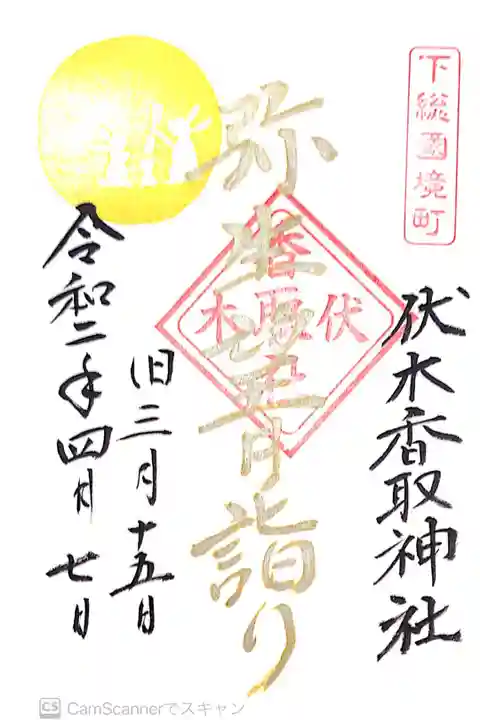 下総國境町
伏木香取神社
弥生望月詣り
伏
木
香
取
旧三月十五日
令和二年四月七日
CS CamScannerでスキャン